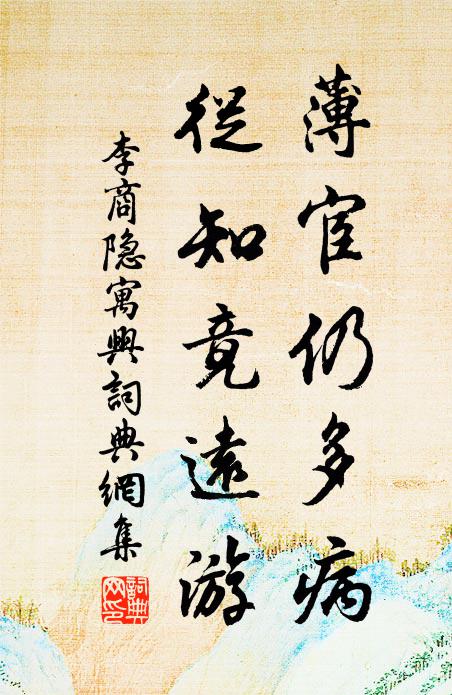 薄宦仍多病
從知竟遠游
李商隐寓興詞典網集
詞典网印